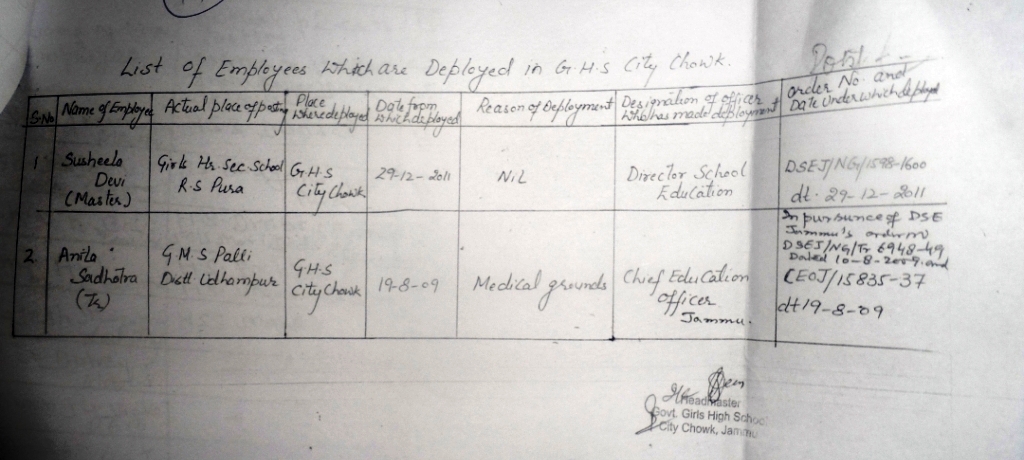 List of Employees Which are Deployed in G.H.S City Chowk.
S.No
Name of Employee
Actual place of posting
Place
Where deployed
Date from
which deployed
Reason of Deployment
Designation of officer
Who has made deployment
Order No. and
Date Under which deployed
1
Susheela
Devi
(Master)
Girls Hr. Sec. School
R.S Pura
G.H.S
City Chowk
29-12-2011
NiL
Director School
Education
DSEJ/NG/1598-1600
dt. 29-12-2011
2
Anita
Sadhotra
(Tr)
G.M.S Palli
Distt Udhampur
G.H.S
City Chowk
19-8-09
Medical grounds
Chief Education
Officer
Jammu.
In pursunce of DSE
Jammu's order no
DSEJ/NG/Tr 6948-49
Dated 10-8-2009 and
CEOJ/15835-37
dt 19-8-09
Headmaster
Govt. Girls High School
City Chowk, Jammu